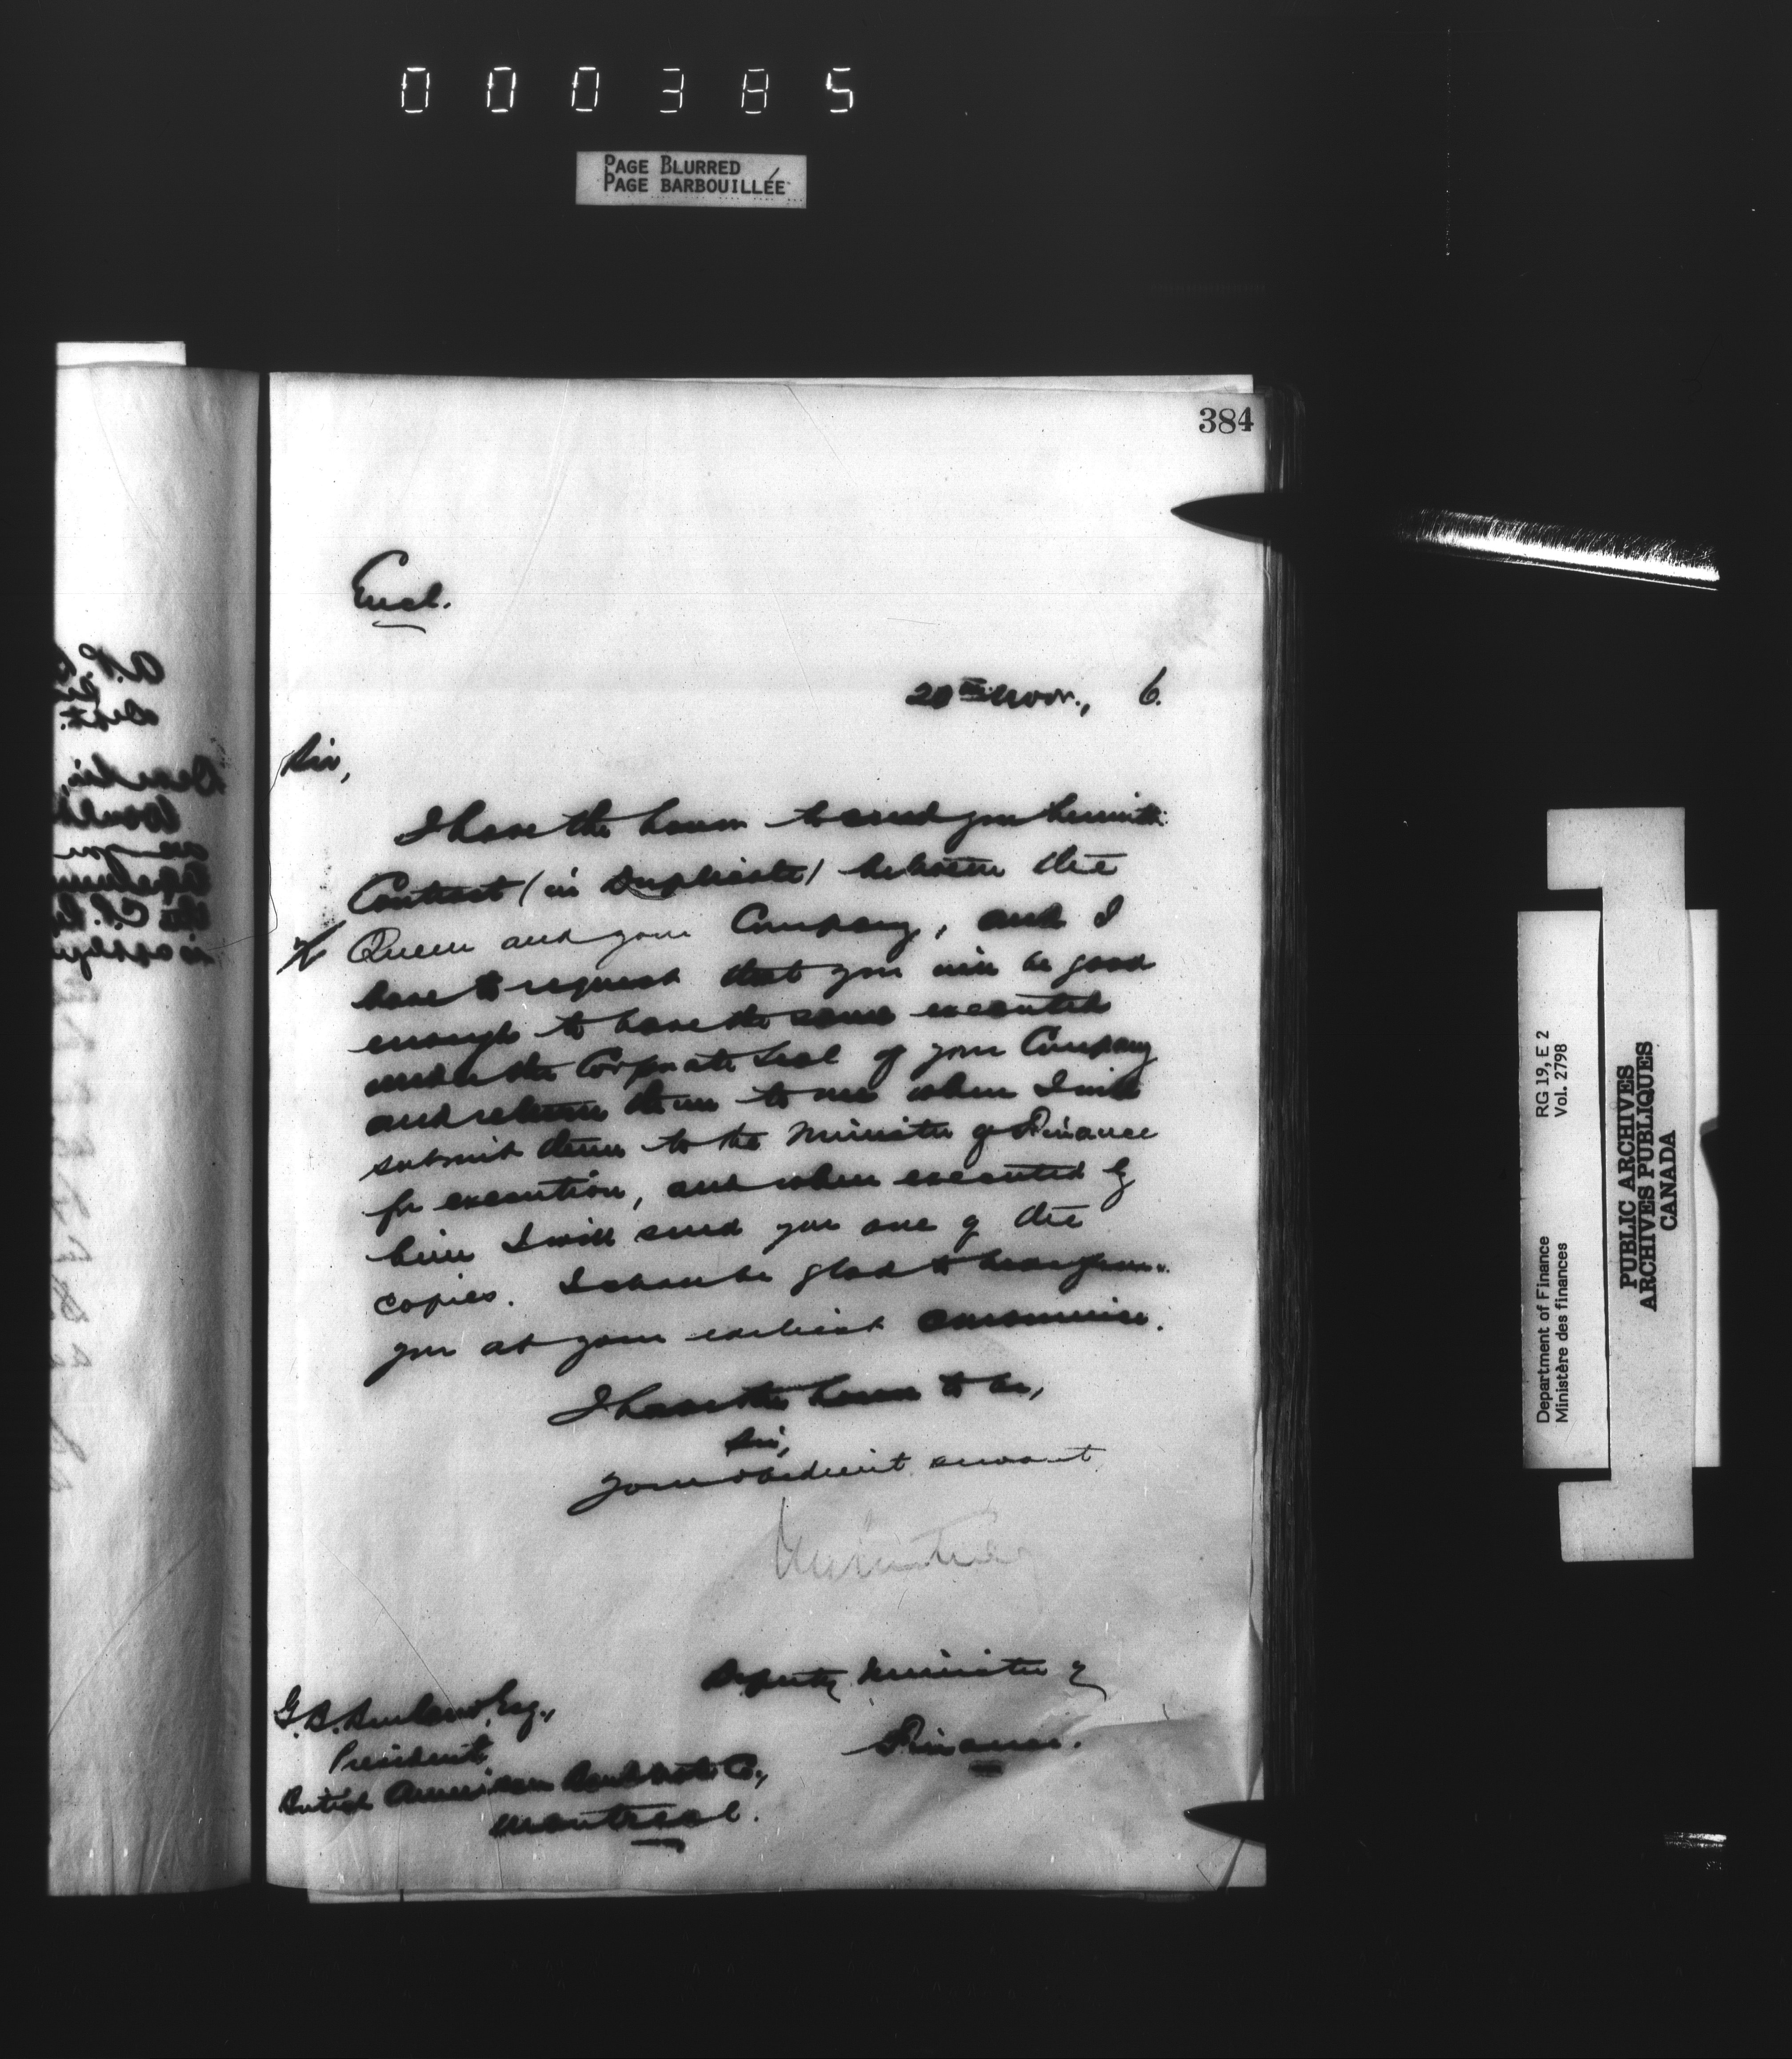 000385
PAGE BLURRED
PAGE BARBOUILLÉE
384
Encl.
20th Novr., 6.
Sir,
I have the honor to send you herewith
Contract (in duplicate) between the
Queen and your Company, and I
have to request that you will be good
enough to have the same executed
under the Corporate Seal of your Company
and return them to me when I will
submit them to the Minister of Finance
for execution, and when executed by
him I will send you one of the
copies. I shall be glad to hear from
you at your earliest convenience.
I have the honor to be,
Sir,
Your obedient servant
Deputy Minister of
Finance.
G. B. Burland, Esq.,
President
British American Bank Note Co.,
Montreal.
Department of Finance RG 19, E 2
Ministère des finances Vol. 2798
PUBLIC ARCHIVES
ARCHIVES PUBLIQUES
CANADA